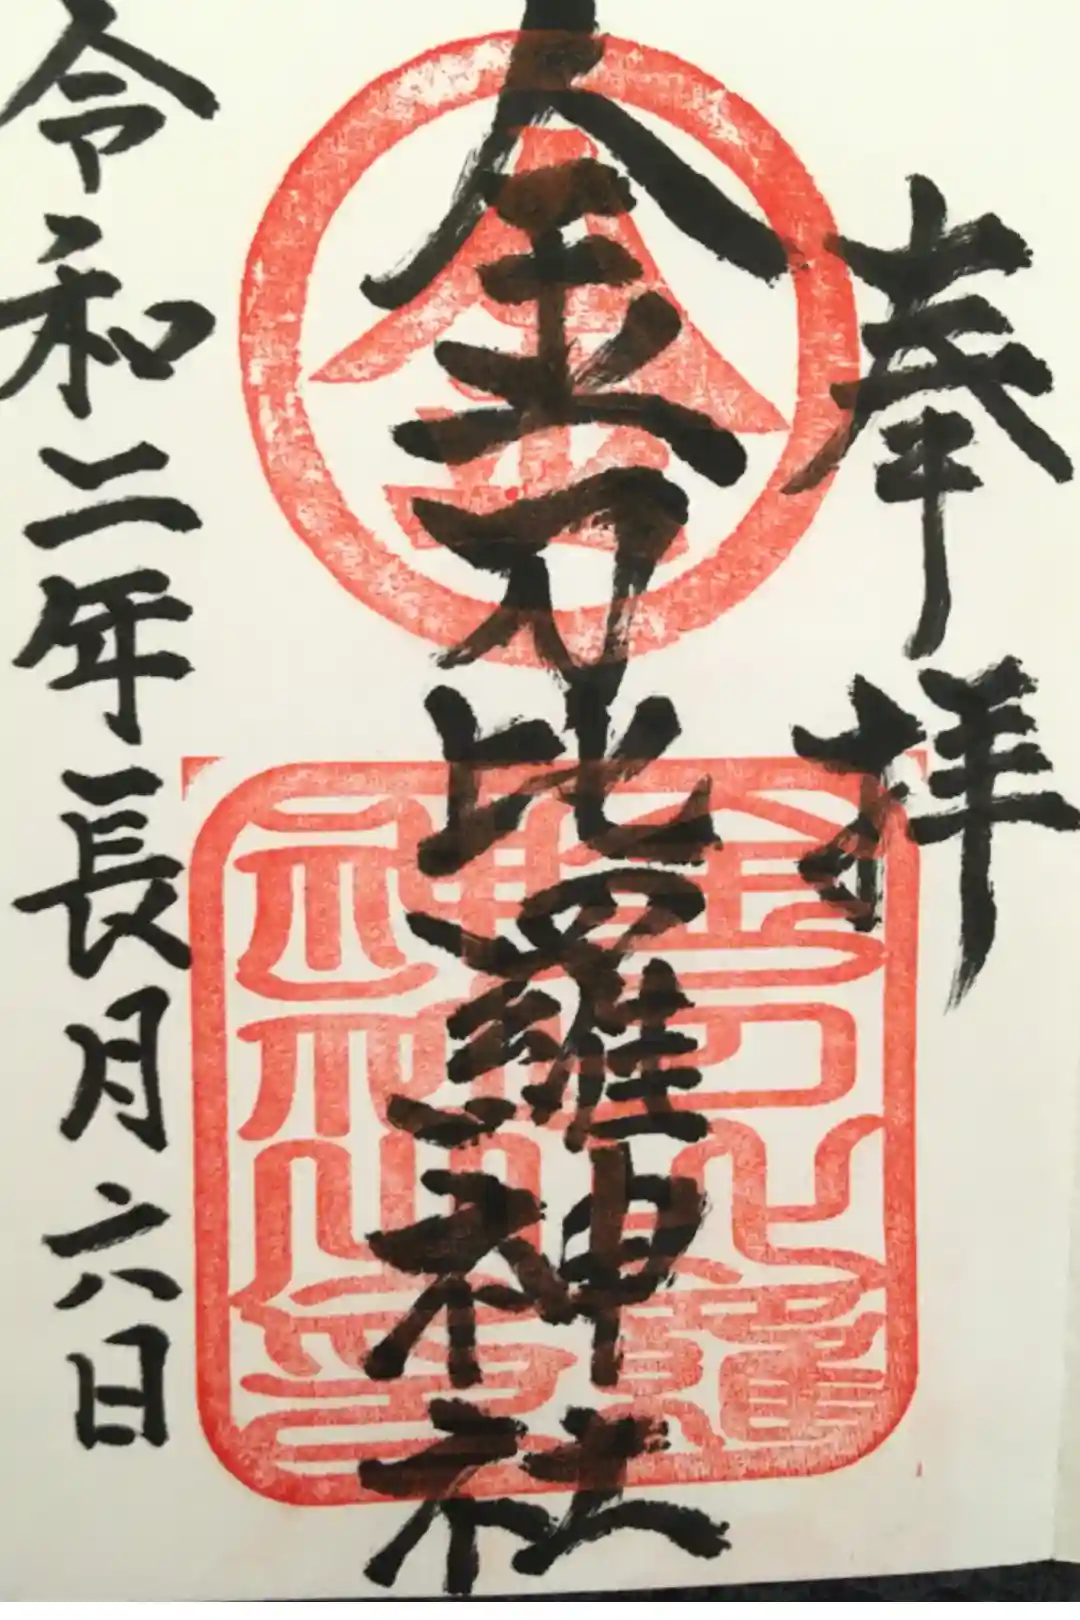 奉拝
金
金刀比羅神社
金刀比羅
神社之印
令和二年長月六日